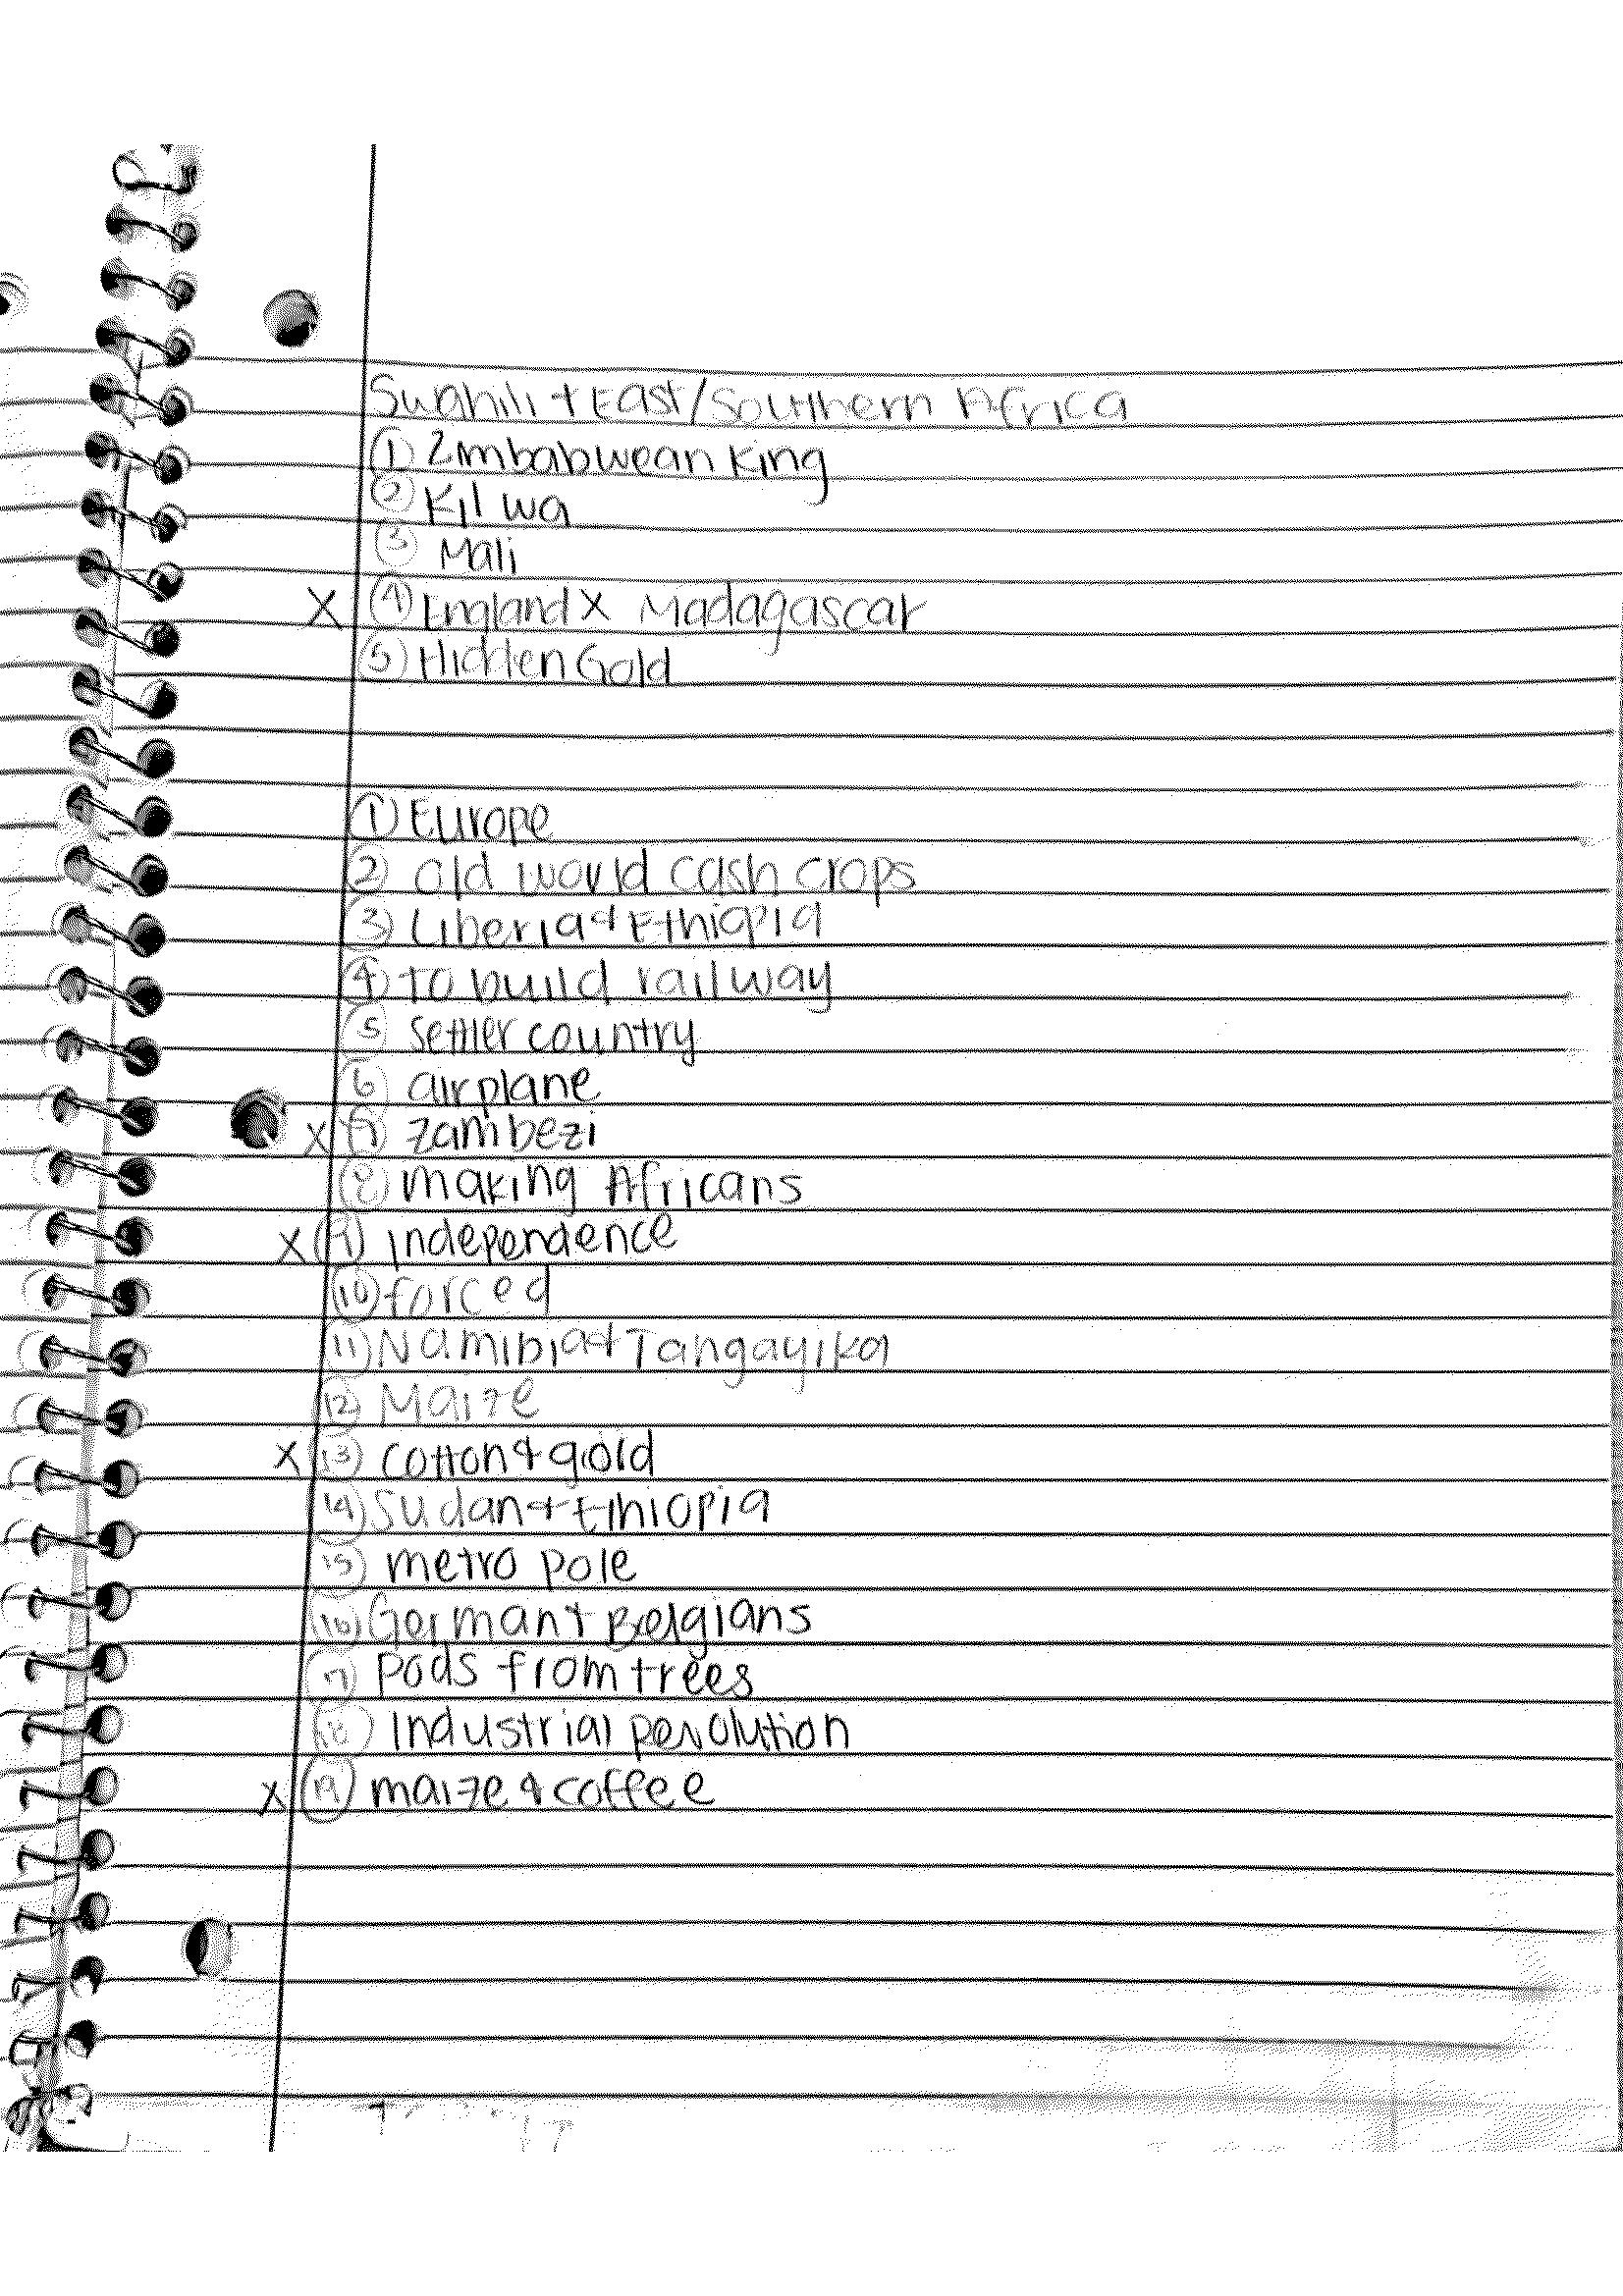 Swahili + East/Southern Africa
① Zmbabwean King
② Kilwa
③ Mali
X ④ England X Madagascar
⑤ Hidden Gold
① Europe
② Old world cash crops
③ Liberia & Ethiopia
④ to build railway
⑤ settler country
⑥ airplane
X ⑦ Zambezi
⑧ making Africans
X ⑨ independence
⑩ forced
⑪ Namibia & Tangayika
⑫ Maize
X ⑬ cotton & gold
⑭ Sudan & Ethiopia
⑮ metro pole
⑯ German + Belgians
⑰ pods from trees
⑱ Industrial Revolution
X ⑲ maize & coffee